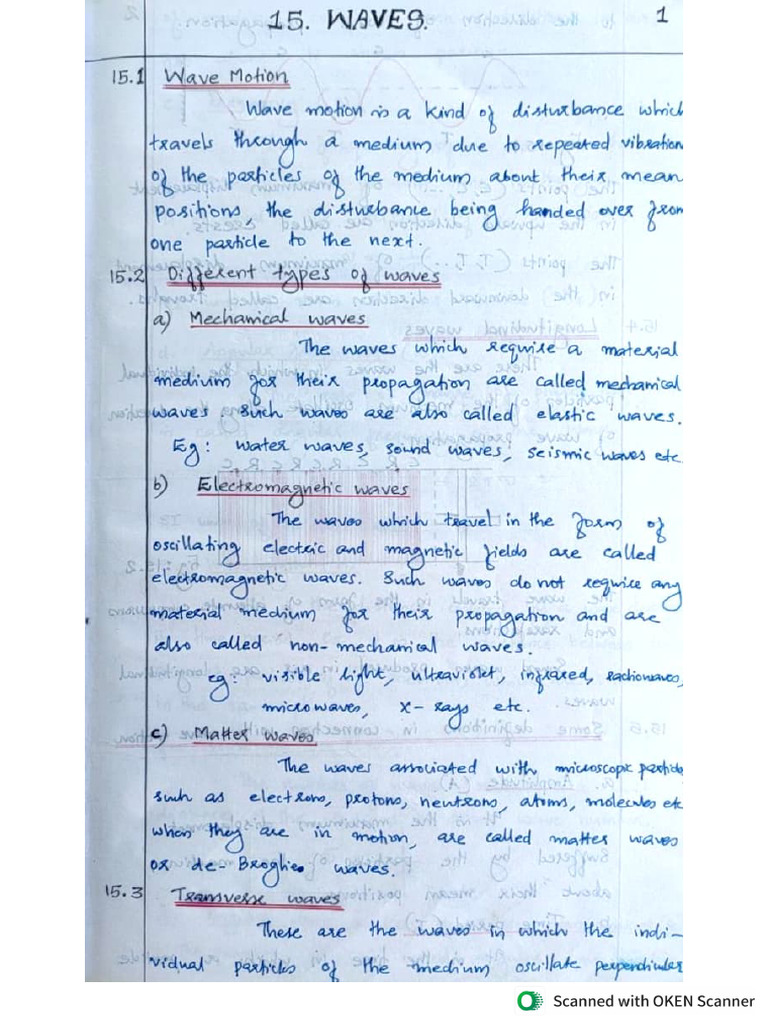 15. WAVES. 1
15.1 Wave Motion
Wave motion is a kind of disturbance which
travels through a medium due to repeated vibration
of the particles of the medium about their mean
positions, the disturbance being handed over from
one particle to the next.
15.2 Different types of waves
a) Mechanical waves
The waves which require a material
medium for their propagation are called mechanical
waves. Such waves are also called elastic waves.
Eg: water waves, sound waves, seismic waves etc
b) Electromagnetic waves
The waves which travel in the form of
oscillating electric and magnetic fields are called
electromagnetic waves. Such waves do not require any
material medium for their propagation and are
also called non-mechanical waves.
eg: visible light, ultraviolet, infrared, radiowaves,
microwaves, x-rays etc.
c) Matter waves
The waves associated with microscopic particles
such as electrons, protons, neutrons, atoms, molecules etc
when they are in motion, are called matter waves
or de-Broglie waves.
15.3 Transverse waves
These are the waves in which the indi-
vidual particles of the medium oscillate perpendicular
Scanned with OKEN Scanner